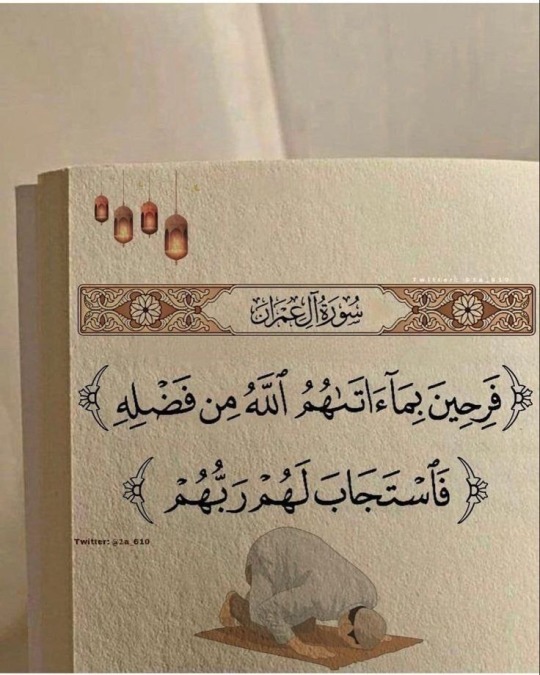 Twitter: @2a_610
سُورَةُ آلِ عِمْرَان
﴿فَرِحِينَ بِمَآ ءَاتَىٰهُمُ ٱللَّهُ مِن فَضْلِهِ﴾
﴿فَٱسْتَجَابَ لَهُمْ رَبُّهُمْ﴾
Twitter: @2a_610